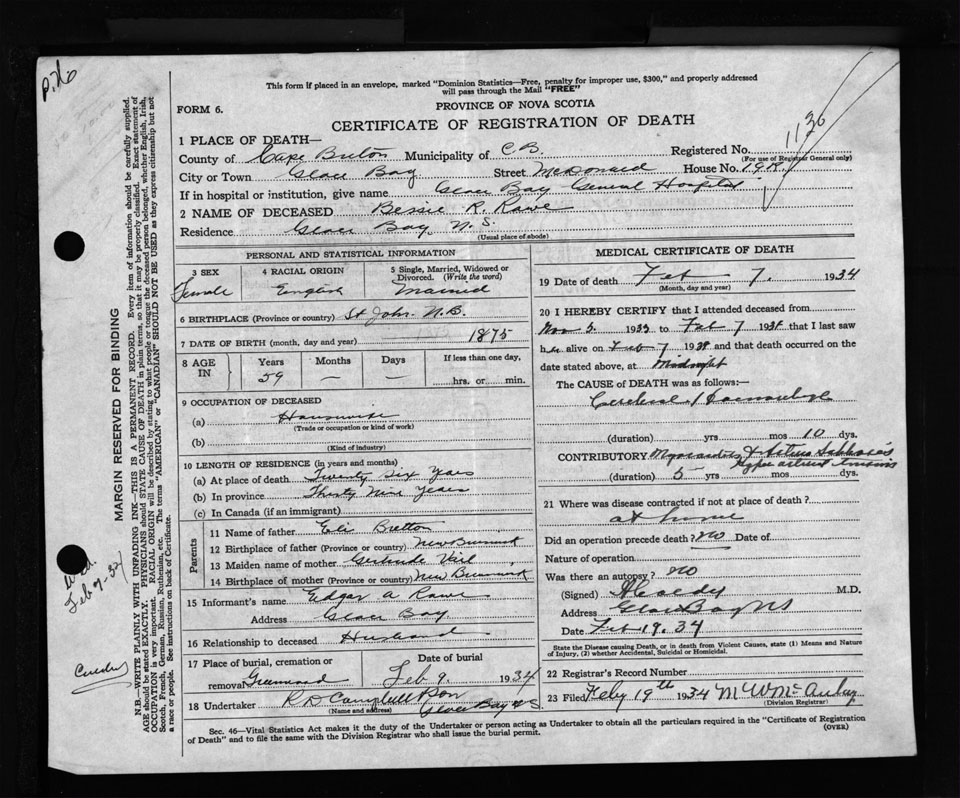 p. 26
This form if placed in an envelope, marked "Dominion Statistics—Free, penalty for improper use, $300," and properly addressed
will pass through the Mail "FREE"
FORM 6.
PROVINCE OF NOVA SCOTIA
CERTIFICATE OF REGISTRATION OF DEATH
1136
1 PLACE OF DEATH—
County of Cape Breton Municipality of C.B. Registered No.
(For use of Registrar General only)
City or Town Glace Bay Street McDonald House No.
If in hospital or institution, give name Glace Bay General Hospital
2 NAME OF DECEASED Bessie R. Rawe
Residence Glace Bay N.S
(Usual place of abode)
PERSONAL AND STATISTICAL INFORMATION
3 SEX
Female
4 RACIAL ORIGIN
English
5 Single, Married, Widowed or
Divorced. (Write the word)
Married
6 BIRTHPLACE (Province or country) St John N.B.
7 DATE OF BIRTH (month, day and year) 1875
8 AGE IN
Years Months Days If less than one day,
59 — — hrs. or min.
9 OCCUPATION OF DECEASED
(a) Housewife
(Trade or occupation or kind of work)
(b)
(Kind of industry)
10 LENGTH OF RESIDENCE (in years and months)
(a) At place of death Twenty Six Years
(b) In province Thirty Nine Years
(c) In Canada (if an immigrant)
Parents
11 Name of father Eli Britton
12 Birthplace of father (Province or country) New Brunswick
13 Maiden name of mother Gertrude Vail
14 Birthplace of mother (Province or country) New Brunswick
15 Informant's name Edgar A Rawe
Address Glace Bay
16 Relationship to deceased Husband
17 Place of burial, cremation or
removal Greenwood
Date of burial
Feb 9. 1934
18 Undertaker R D Campbell & Son
(Name and address) Glace Bay N S
MEDICAL CERTIFICATE OF DEATH
19 Date of death Feb 7. 1934
(Month, day and year)
20 I HEREBY CERTIFY that I attended deceased from
Nov 5. 1933 to Feb 7 1934 that I last saw
her alive on Feb 7 1934 and that death occurred on the
date stated above, at Midnight
The CAUSE OF DEATH was as follows:—
Cerebral Haemorrhage
(duration) yrs mos 10 dys.
CONTRIBUTORY Myocarditis & Arterio
(duration) 5 yrs mos dys.
21 Where was disease contracted if not at place of death?
at home
Did an operation precede death? no Date of
Nature of operation
Was there an autopsy? no
(Signed) M.D.
Address Glace Bay NS
Date Feb 19. 34
State the Disease causing Death, or in death from Violent Causes, state (1) Means and Nature
of Injury, (2) whether Accidental, Suicidal or Homicidal.
22 Registrar's Record Number
23 Filed Feby 19th 1934
(Division Registrar)
Sec. 46—Vital Statistics Act makes it the duty of the Undertaker or person acting as Undertaker to obtain all the particulars required in the "Certificate of Registration
of Death" and to file the same with the Division Registrar who shall issue the burial permit.
(OVER)
MARGIN RESERVED FOR BINDING
N.B.—WRITE PLAINLY WITH UNFADING INK—THIS IS A PERMANENT RECORD. Every item of information should be carefully supplied.
AGE should be stated EXACTLY. PHYSICIANS should STATE CAUSE OF DEATH in plain terms, so that it may be properly classified. Exact statement of
OCCUPATION is very important. RACIAL ORIGIN will be described by stating to what people or tongue the deceased person belonged, whether English, Irish,
Scotch, French, German, Russian, Ruthenian, etc. The terms "AMERICAN" or "CANADIAN" SHOULD NOT BE USED as they express citizenship but not
a race or people. See instructions on back of Certificate.